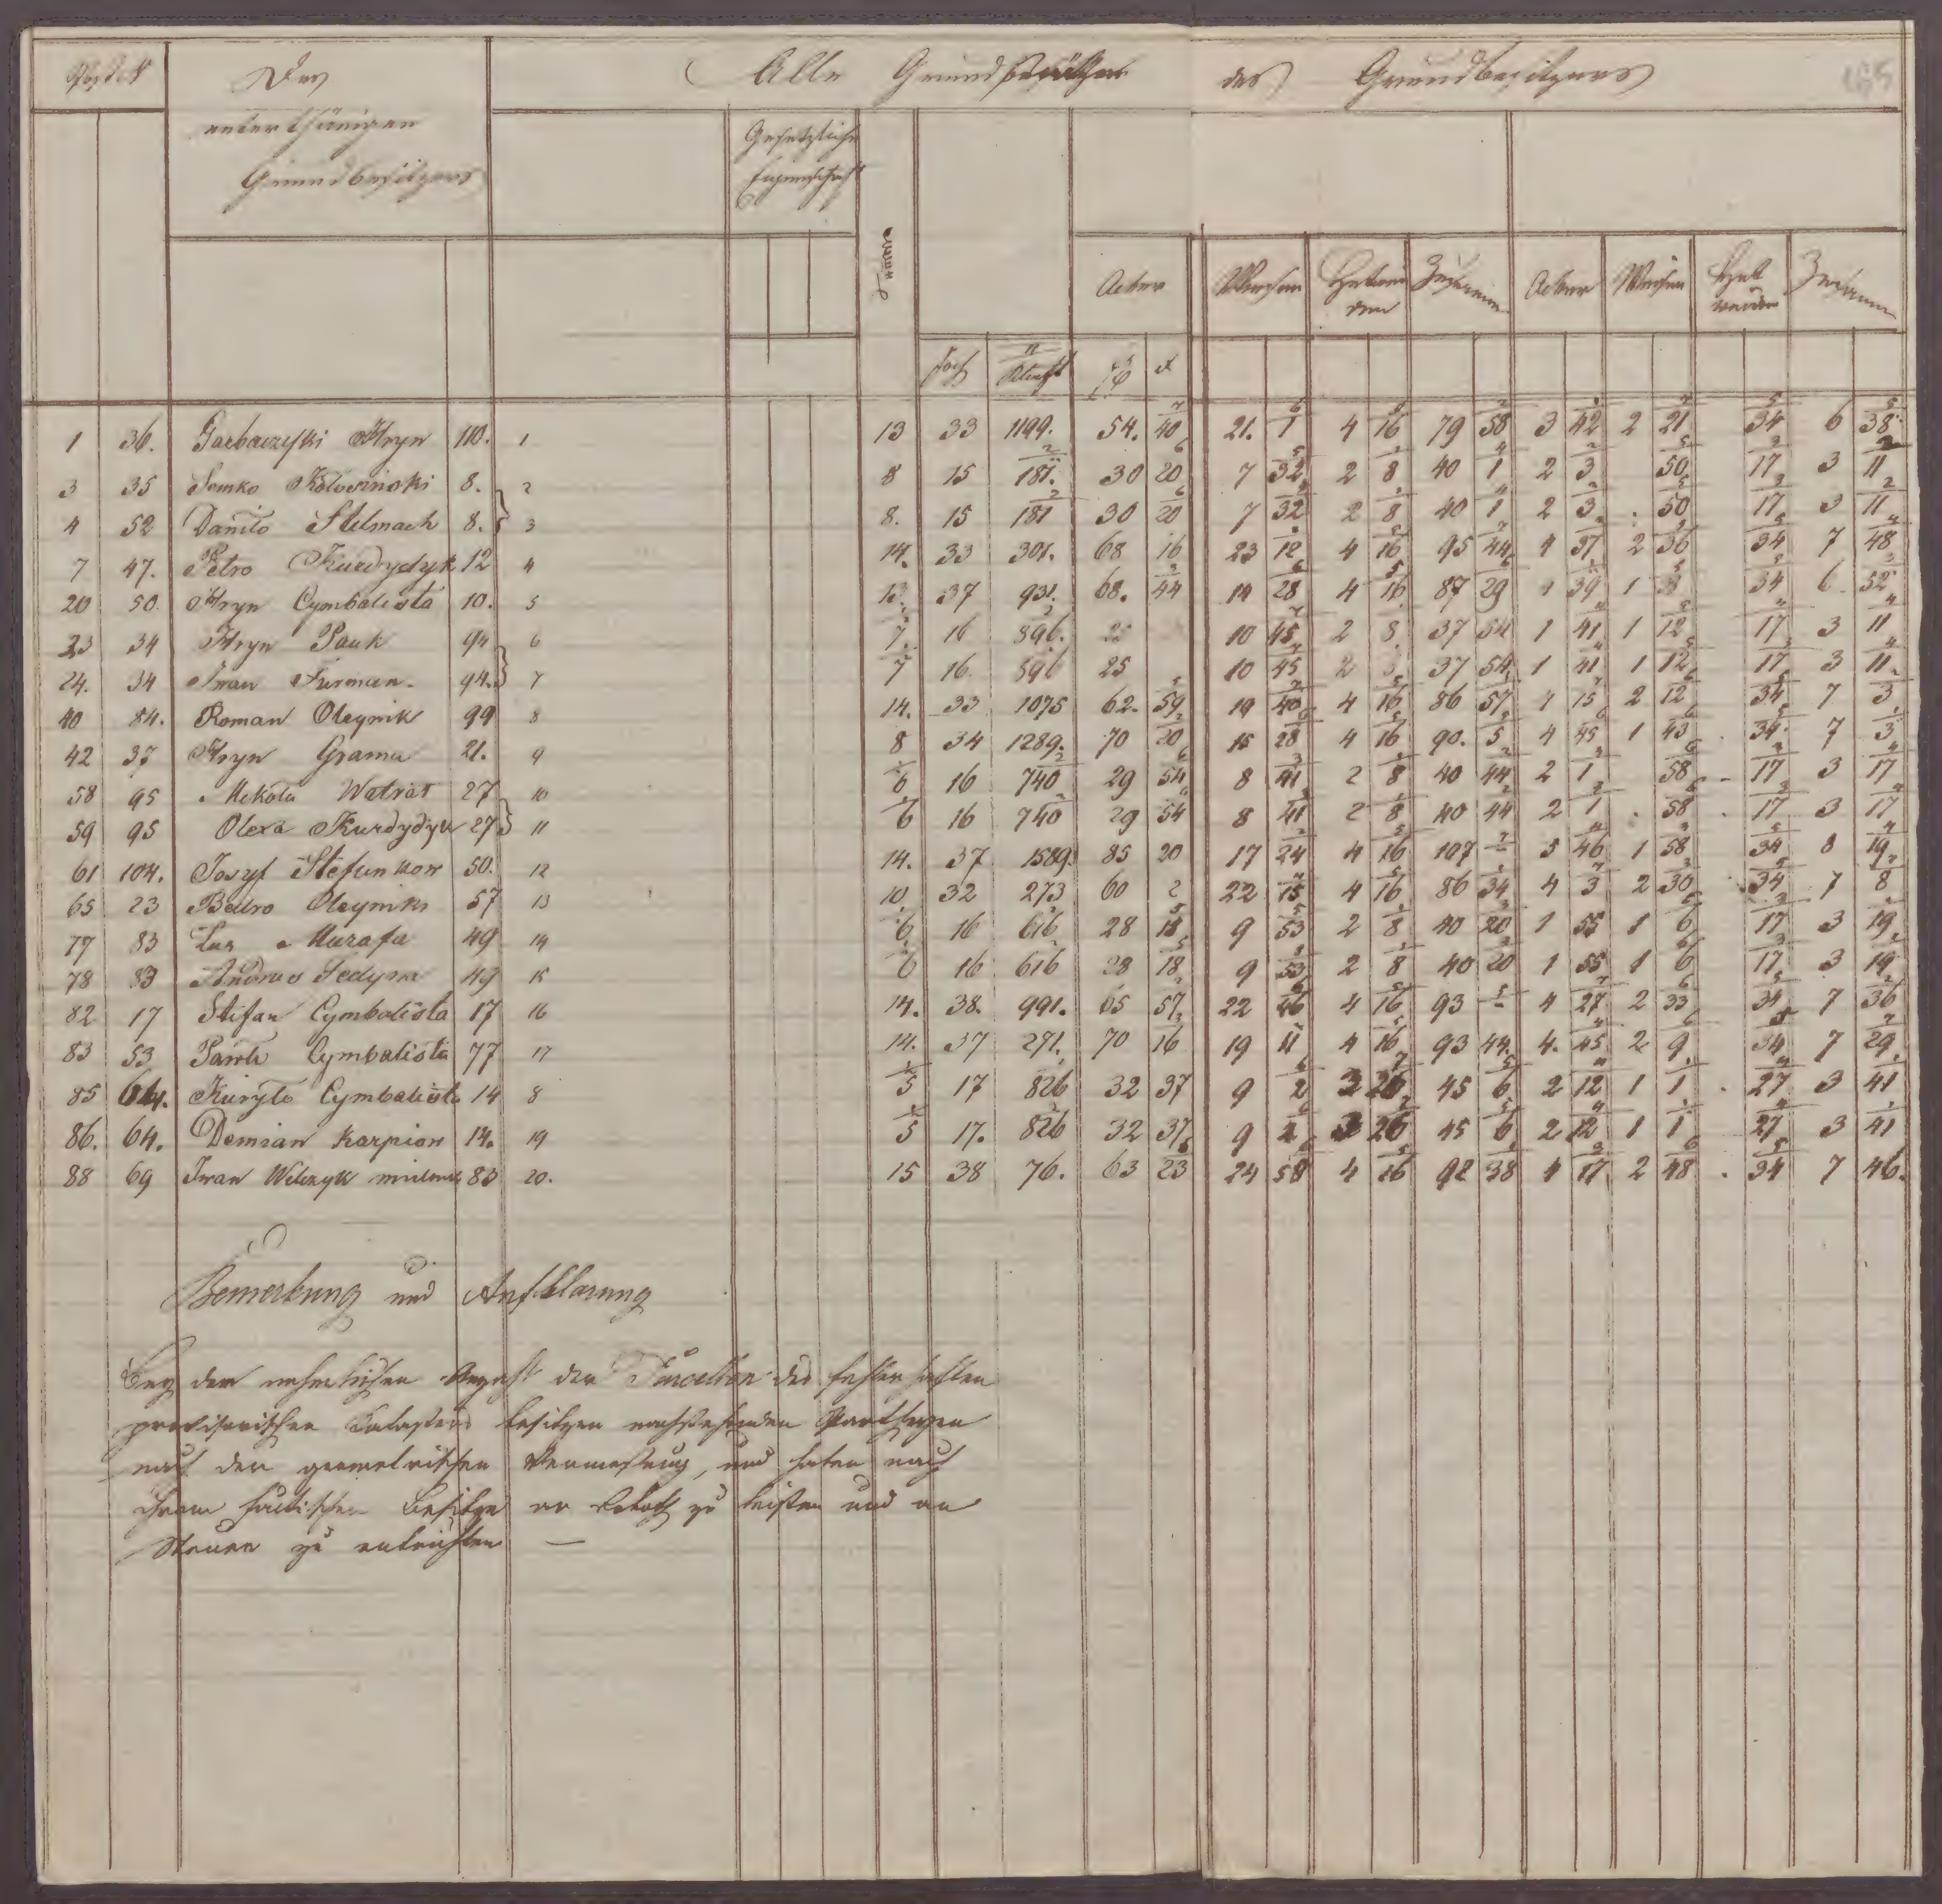 Post N Des Alle Grundstücke des Grundbesitzers
unterthänigen Gesetzliche
Grundbesitzers Eigenschaft
Acker Wiesen Hutweiden Zusammen Acker Wiesen Hutweiden Zusammen
Joch Klaft
1 36. Garbaczyski Hryn 110. 1 13 33 1199. 54. 40 21. 1 4 16 79 58 3 42 2 21 34 6 38
3 35 Semko 8. 2 8 15 181. 30 20 7 32 2 8 40 1 2 3 50 17 3 11
4 52 Daniło Stelmach 8. 3 8. 15 181 30 20 7 32 2 8 40 1 2 3 . 50 17 3 11
7 47. Petro Kurdydyk 12 4 14. 33 301. 68 16 23 12 4 16 95 44 4 37 2 36 34 7 48
20 50. Hryn Cymbalista 10. 5 13 37 931. 68. 44 14 28 4 16 87 29 4 39 1 34 6 52
23 34 Hryn Pauk 94 6 7 16 896. 25 10 45 2 8 37 54 1 41 1 12 17 3 11
24. 34 Iwan Furman. 94. 7 7 16. 896 25 10 45 2 37 54 1 41 1 12 17 3 11
40 84. Roman Oleynik 99 8 14. 33 1075 62. 59 19 40 4 16 86 57 4 15 2 12 34 7 3
42 37 Hryn Grama 21. 9 8 34 1289. 70 20 15 28 4 16 90. 5 4 45 1 43 34 7 3
58 95 Mikola 27 10 6 16 740 29 54 8 41 2 8 40 44 2 1 58 17 3 17
59 95 Olexa Kurdydyk 27 11 6 16 740 29 54 8 41 2 8 40 44 2 1 . 58 . 17 3 17
61 104. Josyf Stefunkow 50. 12 14. 37 1589. 85 20 17 24 4 16 107 - 5 46 1 58 34 8 19
65 23 Oleynik 57 13 10 32 273 60 2 22 15 4 16 86 34 4 3 2 30 34 7 8
77 83 Murafa 49 14 6 16 616 28 18 9 53 2 8 40 20 1 55 1 6 17 3 19
78 83 Andrus Fedyna 49 15 6 16 616 28 18 9 53 2 8 40 20 1 55 1 6 17 3 19
82 17 Stefan Cymbalista 17 16 14. 38. 991. 65 57 22 46 4 16 93 - 4 27 2 33 34 7 36
83 53 Pawlo Cymbalista 77 17 14. 37 271. 70 16 19 11 4 16 93 44. 4. 45 2 9 34 7 29
85 64. Kuryło Cymbalista 14 8 5 17 826 32 37 9 2 3 26 45 6 2 12 1 1 . 27 3 41
86. 64. Demian Karpion 14. 19 5 17. 826 32 37 9 2 3 26 45 6 2 12 1 1 27 3 41
88 69 Iwan Wilczyk 83 20. 15 38 76. 63 23 24 58 4 16 92 38 4 17 2 48 . 34 7 46.
Bemerkung und Aufklarung
Bey der nehmlichen Anzahl der Parcellen des fehlerhaften
provisorischen Catasters besitzen nachstehenden Partheyen
nach der geometrischen Vermessung, und haben nach
ihrem factischen Besitze an Roboth zu leisten und an
Steuer zu entrichten —